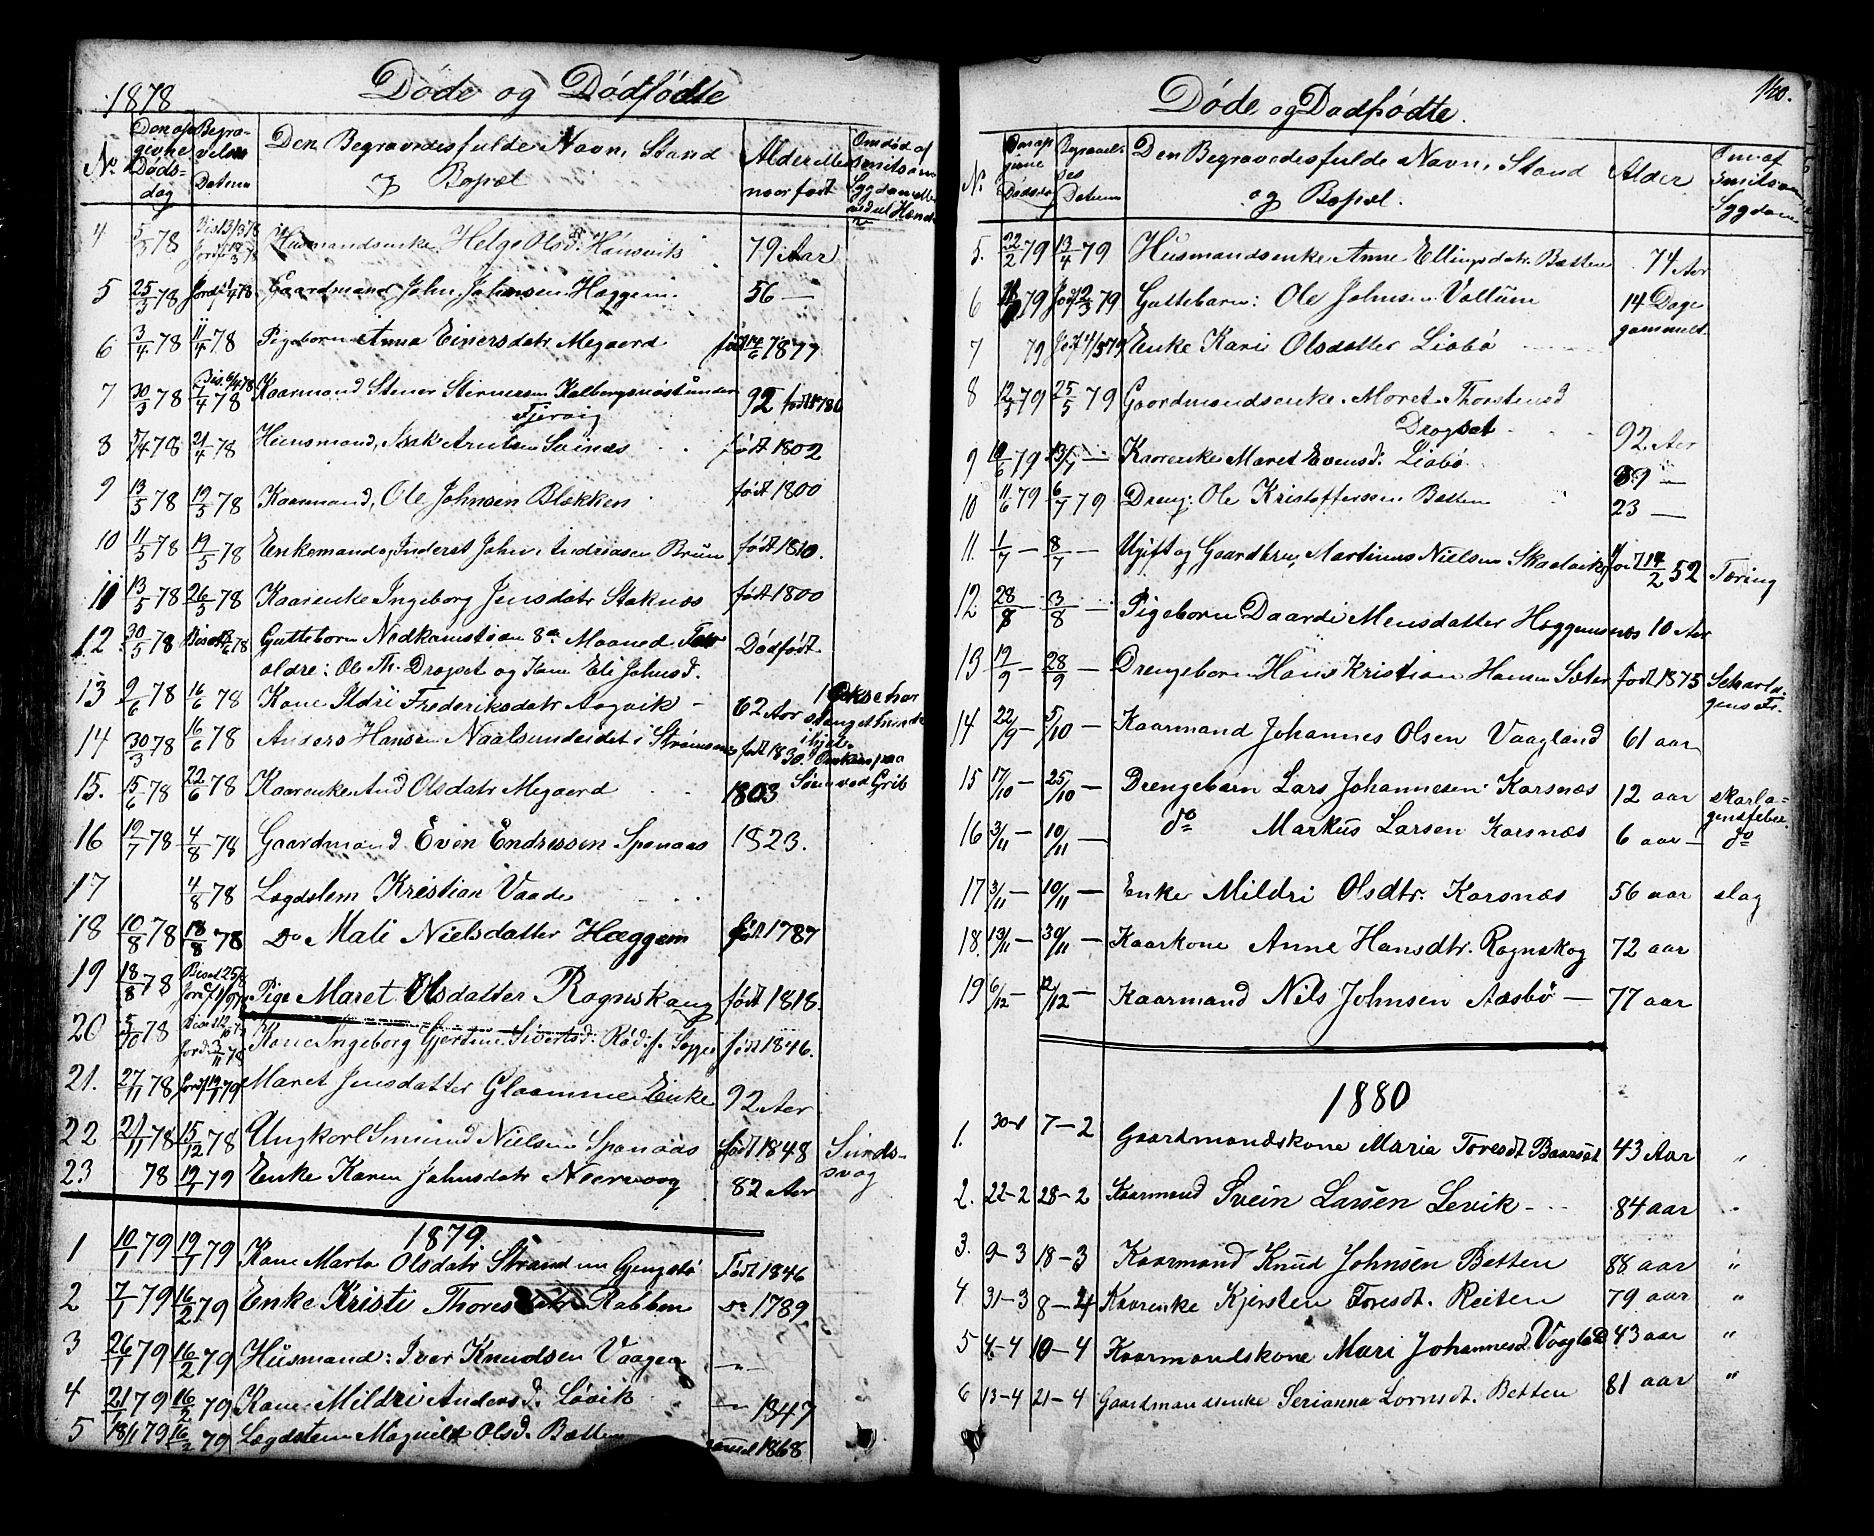 1878 Døde og Dødfødte
No. Den opgivne Dødsdag Begravelses Datum Den Begravedes fulde Navn, Stand og Bopæl Alder eller naar født Om død af smitsom Sygdom eller
4 5/3 78 Bis 13/3 78 Jord Husmandsenke Helge Olsd. Hønsvik 79 Aar
5 25/3 78 Jord 1/4 78 Gaardmand John Johnsen Hæggem 56 —
6 3/4 78 11/4 78 Pigebarn Anna Einersdatr Megaard født 14/6 1877
7 30/3 78 Bis. 6/4 78 7/4 78 Kaarmand Stener Stenersen Kalbergsnøst under Tjervig 92 født 1786
8 5/4 78 21/4 78 Huusmand, Isak Arntsen Svinæs født 1802
9 13/5 78 19/5 78 Kaarmand, Ole Johnsen Blekken født 1800
10 11/5 78 19/5 78 Enkemand og Inderst John Andreasen Bruun født 1810.
11 13/5 78 26/5 78 Kaarenke Ingeborg Jensdatr Stoknæs født 1800
12 30/5 78 Guttebarn Nedkomst om 8de Maaned For Dødfødt
ældre: Ole Th. Drogset og Kone Eli Johnsd.
13 2/6 78 16/6 78 Kone Ildri Frederiksdatr Aagvik — 62 Aar 1 Okse har stanget hende ihjel.
14 30/3 78 16/6 78 Anders Hansen Naalsundeidet i Strømsnes født 1830. Omkom paa Søen ved Grib
15. 15/6 78 22/6 78 Kaarenke And Olsdatr Megaard 1803
16 19/7 78 4/8 78 Gaardmand Even Endressen Spanaas 1823.
17 4/8 78 Lægdslem Kristian Vaade
18 10/8 78 18/8 78 Do Mali Nielsdatter Hæggem født 1787
19 18/8 78 Bisat 25/8 Pige Maret Olsdatter Rognskaug født 1818.
20 5/10 78 Jord 3/11 78 Kone Ingeborg Gjertine Sivertsd. Rød født 1846.
21. 27/11 78 Jordf 12/1 79 Maret Jensdatter Glaamme Enke 92 Aar
22 21/11 78 15/12 78 Ungkarl Simund Nielsen Spanaas født 1848 Sindssvag
23 78 12/1 79 Enke Karen Johnsdatr Neervaag 82 Aar
1879
1 10/1 79 19/1 79 Kone Marta Olsdatr Strand Gjengstø Født 1846
2 7/1 79 16/2 79 Enke Kristi Thoresdatr Rabben Do 1789
3 26/1 79 16/2 79 Husmand: Iver Knudsen Vaagen — " —
4 21/1 79 16/2 79 Kone Mildri Andersd. Løvik — " — 1847
5 18/1 79 16/2 79 Lægdslem Magnild Olsd. Bætten 1868
Døde og Dødfødte. 140.
Nr. Den opgivne Dødsdag Begravelses Datum Den Begravedes fulde Navn, Stand og Bopæl. Alder Om af smitsom Sygdom
5. 22/2 79 13/4 79 Husmandsenke Anne Ellingsdatr. Bætten 74 Aar
6 79 Jordf 2/3 79 Guttebarn: Ole Johnsen Vollum 14 Dage gammel.
7 79 Jordf 4/5 79 Enke Kari Olsdatter Liabø
8 12/5 79 25/5 79 Gaardmandsenke Maret Thorstensd Drogset 92 Aar
9 19/6 79 13/7 — Kaarenke Maret Evensd. Liabø 89 —
10 11/6 79 6/7 79 Dreng: Ole Kristoffersen Bætten 23 —
11. 1/7 — 8/7 — Ugift og Gaardbru, Martinus Nielsen Skaalvik 14/2 52 Tæring
12. 28/8 — 3/8 — Pigebarn Daardi Monsdatter Hæggemsnæs 10 Aar
13 19/9 — 28/9 — Drengebarn Hans Kristian Hansen Sæter født 1875 Skarlagensf.
14 22/9 — 5/10 — Kaarmand Johannes Olsen Vaagland 61 aar
15 17/10 — 25/10 — Drengebarn Lars Johannesen Korsnæs 12 aar skarlagensfeber.
16 3/11 — 10/11 — do Markus Larsen Korsnæs 6 aar — do
17 3/11 — 10/11 — Enke Mildri Olsdtr. Korsnæs 56 aar slag
18. 13/11 — 30/11 — Kaarkone Anne Hansdtr. Rognskog 72 aar
19 6/12 — 12/12 — Kaarmand Nils Johnsen Aasbø — 77 aar
1880
1. 30-1 7-2 Gaardmandskone Maria Toresdt Baarset 43 Aar "
2. 22-2 28-2 Kaarmand Svein Larsen Levik 84 aar "
3. 9-3 18-3 Kaarmand Knud Johnsen Betten 88 aar "
4 31-3 8-4 Kaarenke Kjersten Toresdt. Reiten 79 aar "
5 4-4 10-4 Kaarmandskone Mari Johannesd Vaagland 43 aar "
6 13-4 21-4 Gaardmandsenke Serianna Lornsdt. Betten 81 aar "